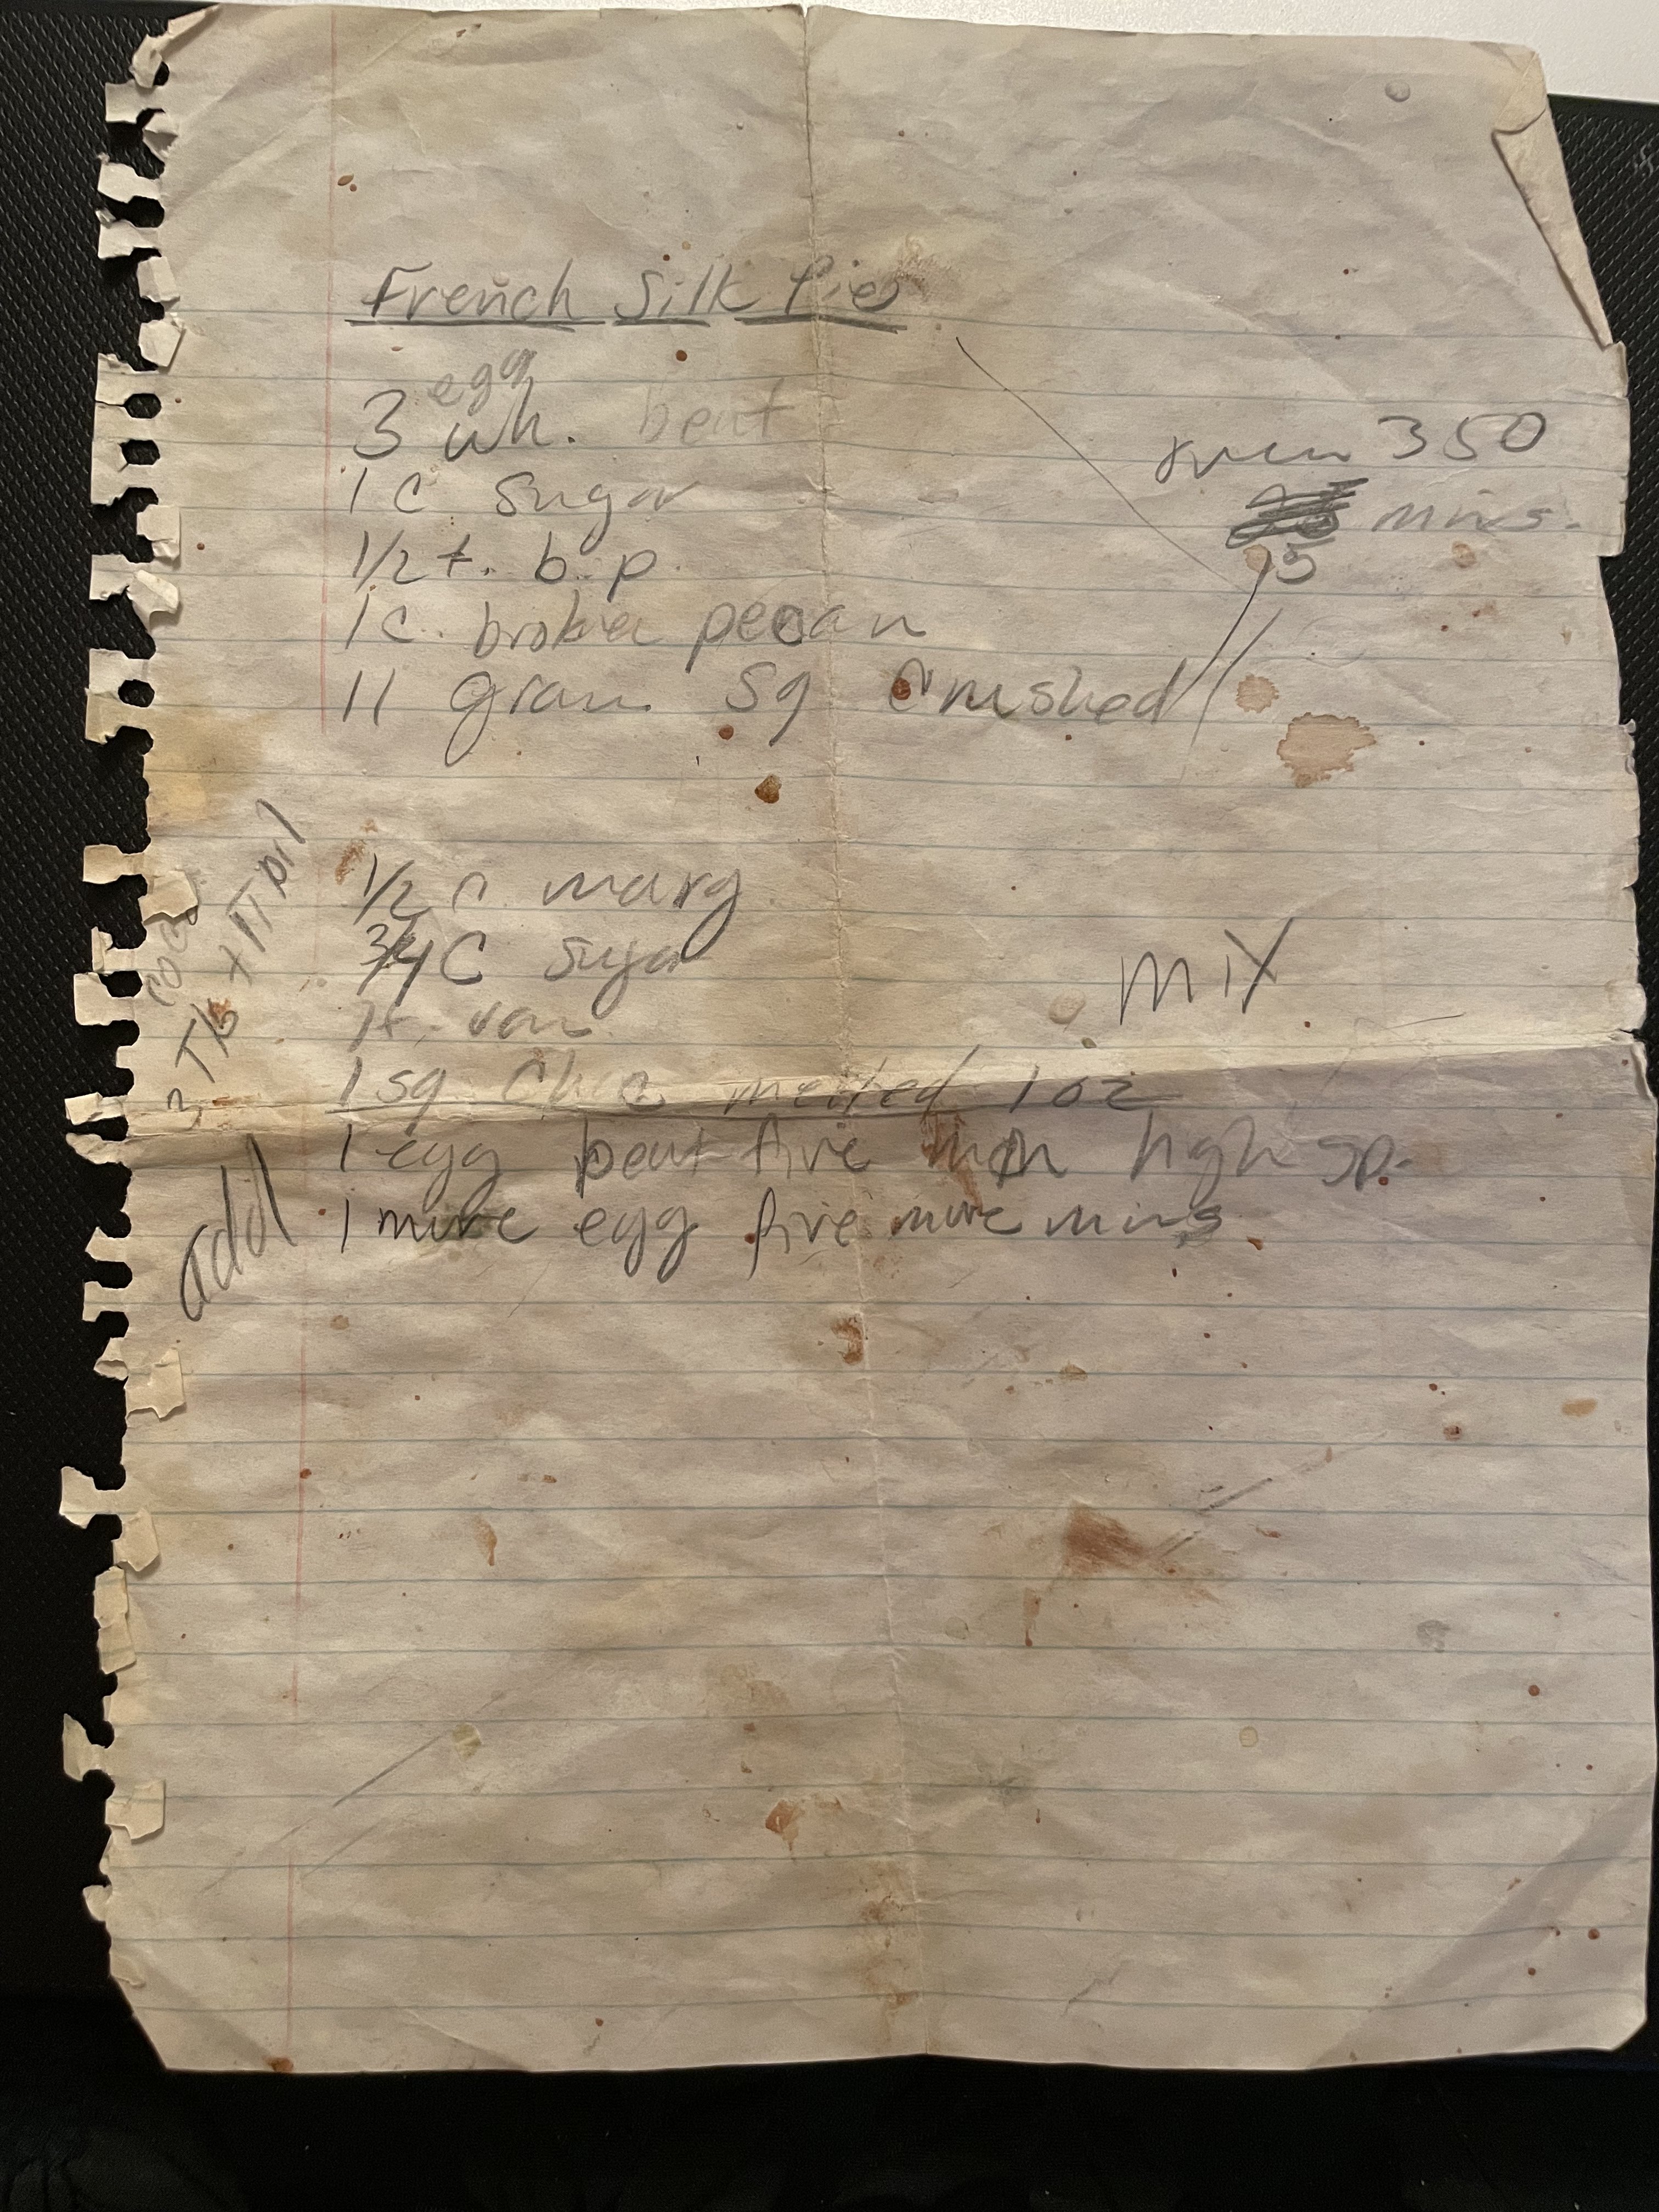 French Silk Pie
egg
3 wh. beat
oven 350
1 C sugar
mins.
1/2 t. b.p.
15
1 C. broken pecan
11 gram sq crushed
1/2 C marg
3/4 C sugar
mix
1 t. van
1 sq choc melted 1 oz
cocoa
3 Tb + 1T oil
add
1 egg beat five min high sp.
1 more egg five more mins